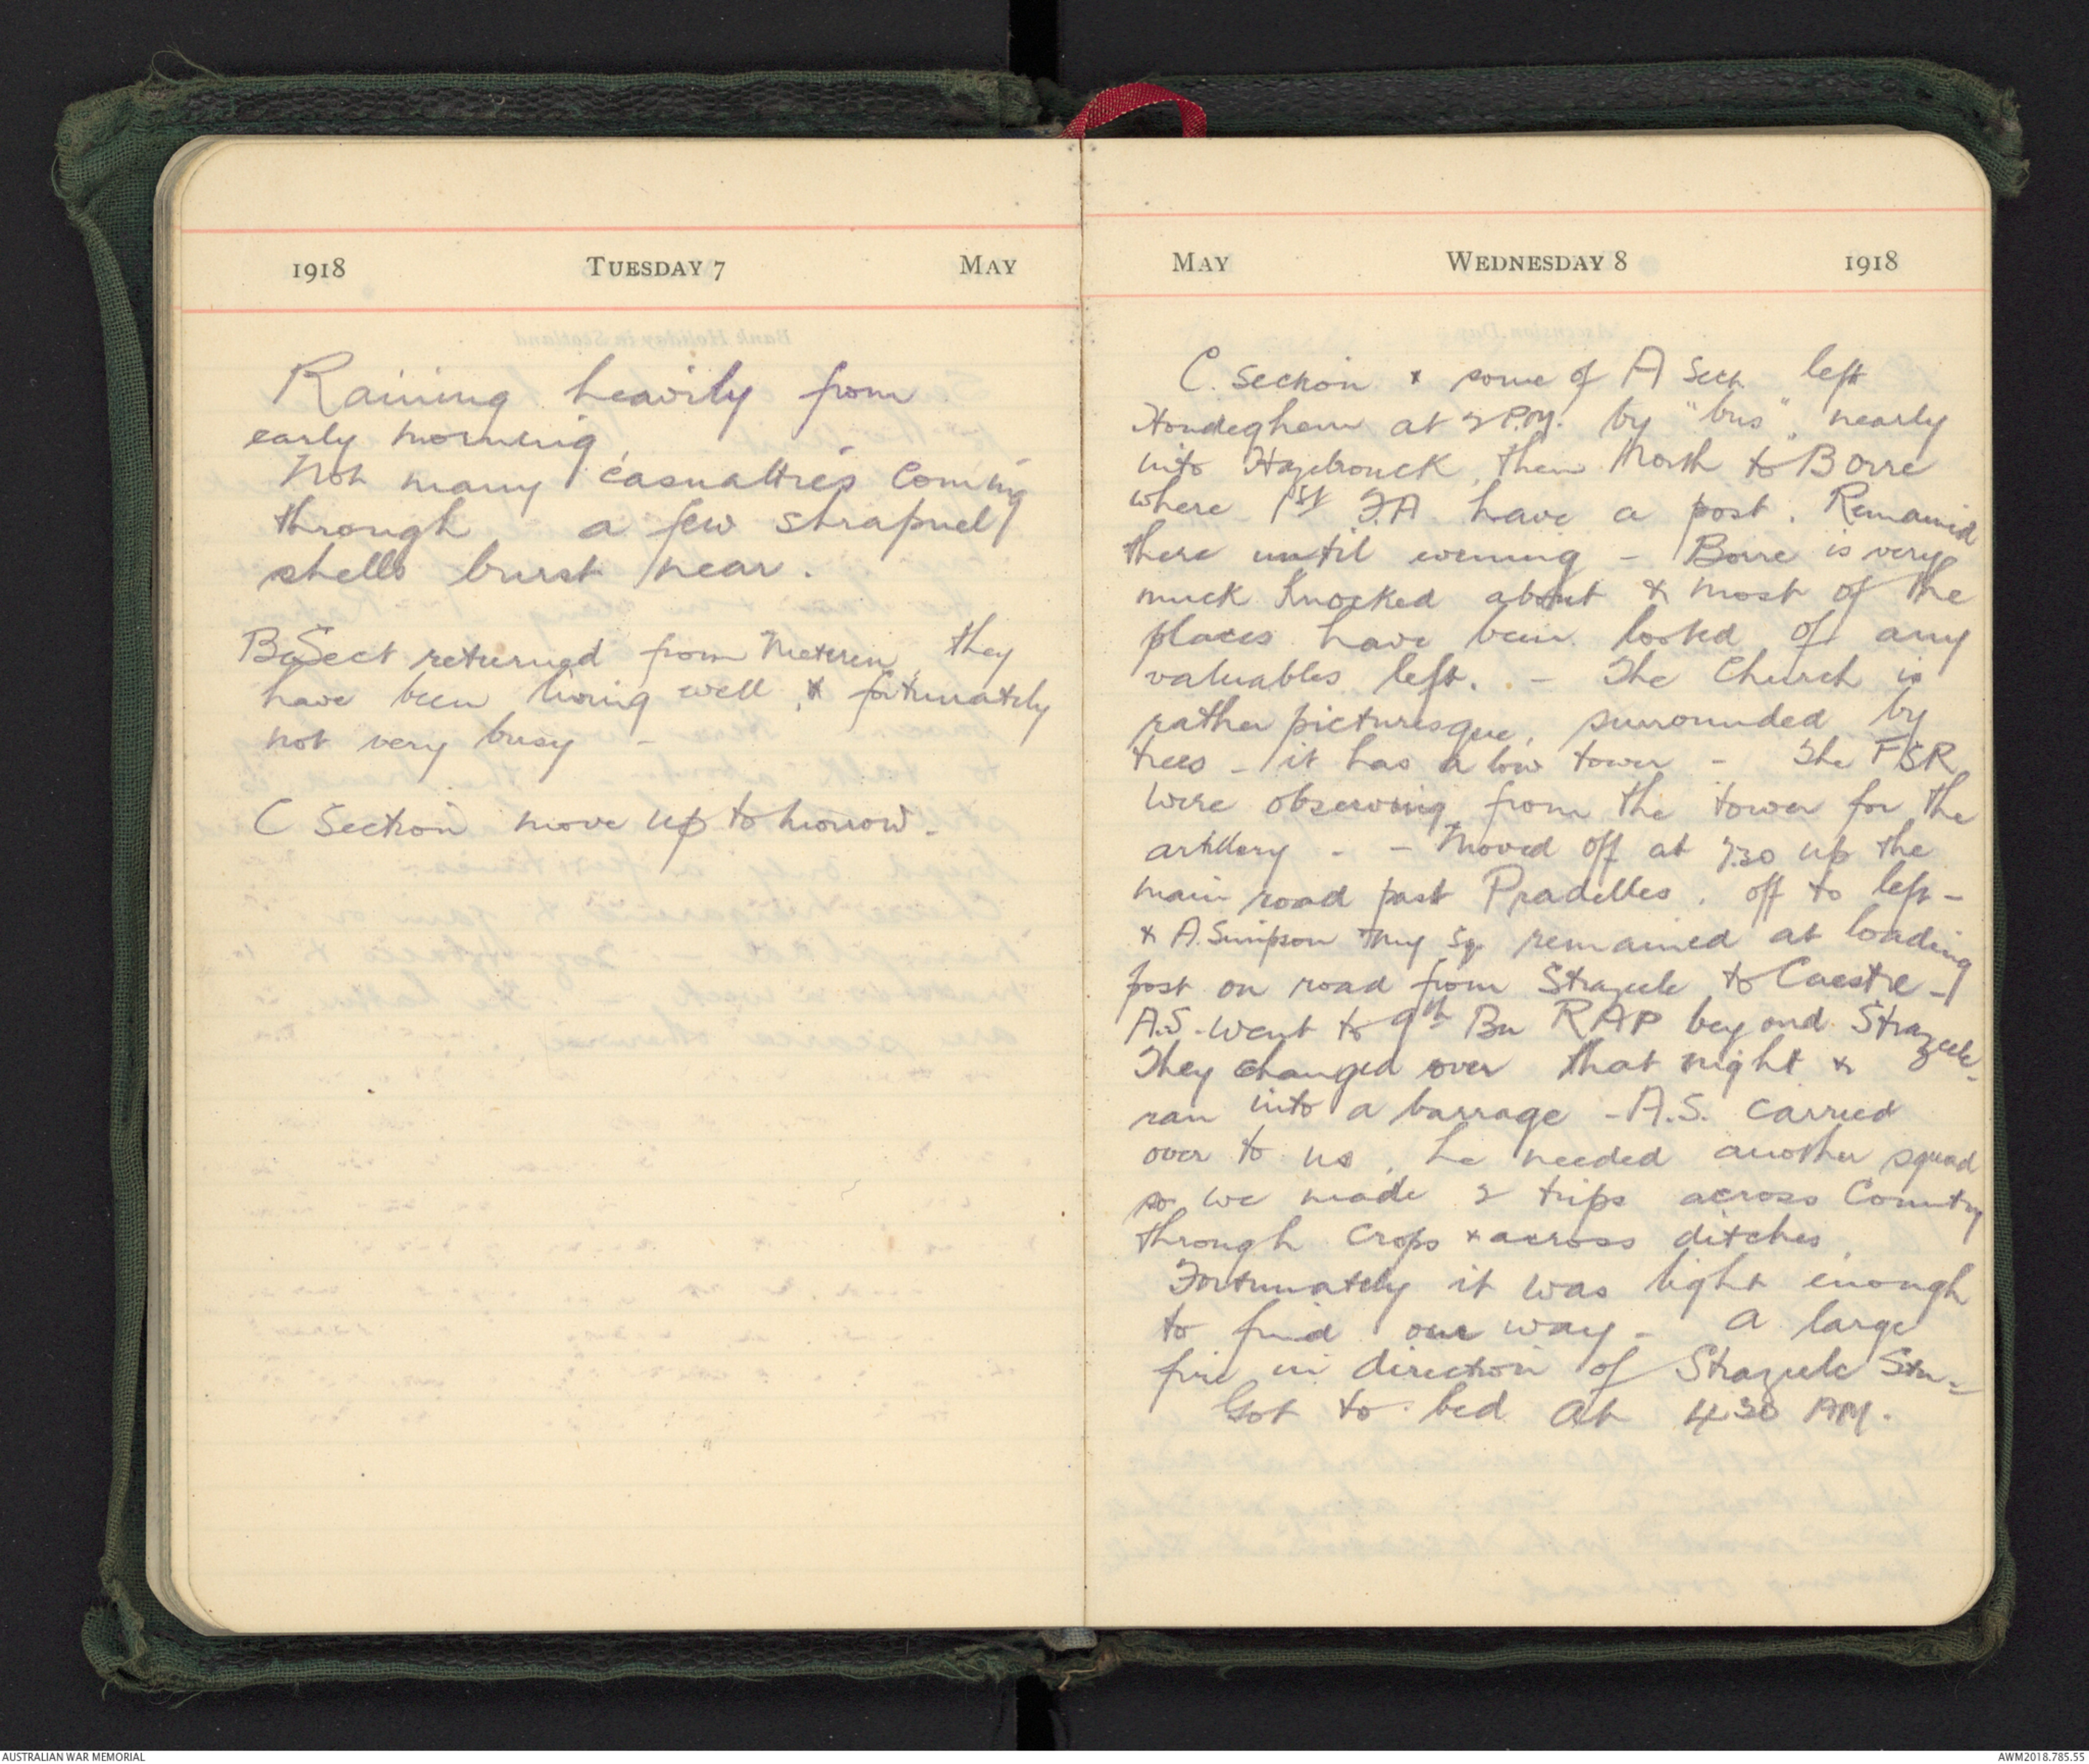 1918 TUESDAY 7 MAY
Raining heavily from
early morning,
Not many casualties coming
through a few shrapnel
shells burst near.
B Sect returned from Meteren, they
have been living well, & fortunately
not very busy -
C Section move up to morrow -
MAY WEDNESDAY 8 1918
C. Section & some of A Sect. left
Hondeghem at 2 P.M. by "bus", nearly
into Hazebrouck, then North to Borre
where 1st F.A. have a post. Remained
there until evening - Borre is very
much knocked about & most of the
places have been looted of any
valuables left. - The Church is
rather picturesque, surrounded by
trees - it has a low tower - The FSR
were observing from the tower for the
artillery - - Moved off at 7.30 up the
main road past Pradelles, off to left -
& A. Simpson & my Sq. remained at loading
post on road from Strazeele to Caestre -
A.S. went to 9th Bn RAP beyond Strazeele -
They changed over that night &
ran into a barrage - A.S. carried
over to us, he needed another squad
so we made 2 trips across Country
through crops & across ditches,
Fortunately it was light enough
to find our way - A large
fire in direction of Strazeele Stn -
Got to bed at 4 30 AM.
AUSTRALIAN WAR MEMORIAL
AWM2018.785.55